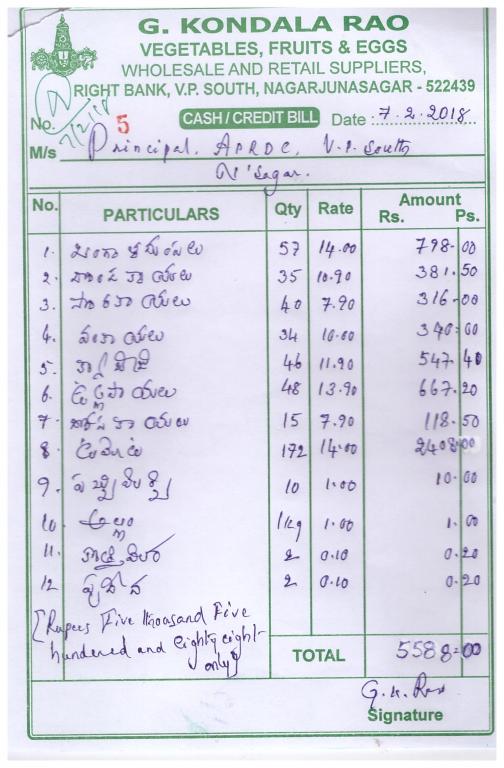 G. KONDALA RAO
VEGETABLES, FRUITS & EGGS
WHOLESALE AND RETAIL SUPPLIERS,
RIGHT BANK, V.P. SOUTH, NAGARJUNASAGAR - 522439
No. 5 CASH / CREDIT BILL Date : 7.2.2018
7/2/18
M/s Principal, APRDC, V.P. South
N'Sagar.
No. PARTICULARS Qty Rate Amount
Rs. Ps.
1. బంగాళదుంపలు 57 14.00 798.00
2. 35 10.90 381.50
3. 40 7.90 316.00
4. వంకాయలు 34 10.00 340.00
5. 46 11.90 547.40
6. ఉల్లిపాయలు 48 13.90 667.20
7. 15 7.90 118.50
8. టమోటా 172 14.00 2408.00
9. పచ్చిమిర్చి 10 1.00 10.00
10. అల్లం 1kg 1.00 1.00
11. కొత్తిమీర 2 0.10 0.20
12 పుదీన 2 0.10 0.20
[Rupees Five thousand Five
hundered and eighty eight
only]
TOTAL 5588.00
G. K. Rao
Signature